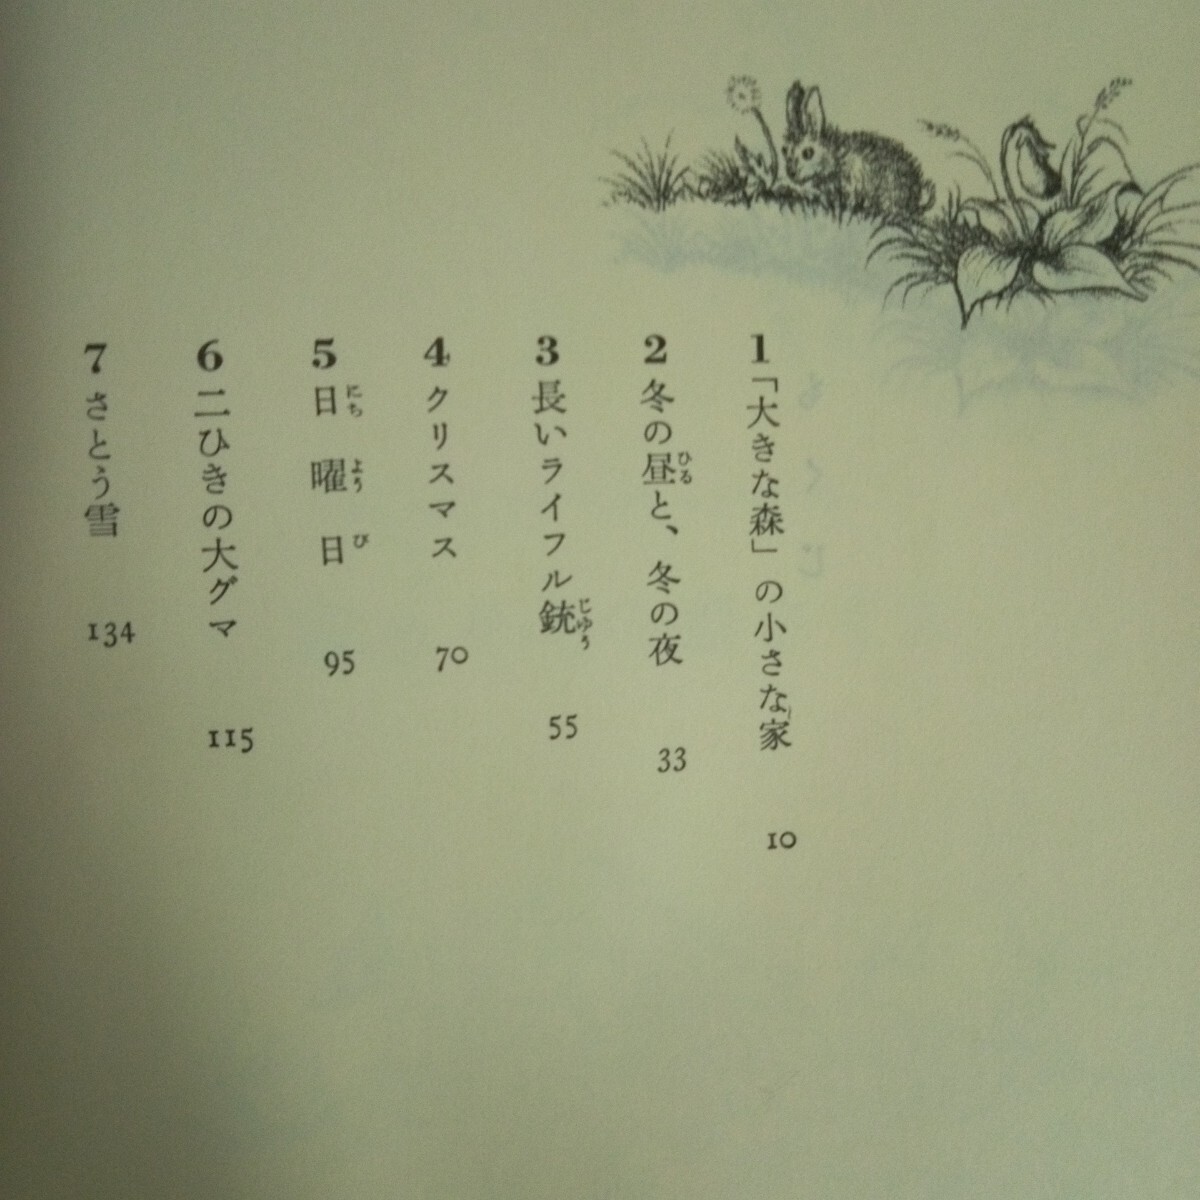 もくじ
1 「大きな森」の小さな家 10
2 冬の昼と、冬の夜 33
3 長いライフル銃 55
4 クリスマス 70
5 日曜日 95
6 二ひきの大グマ 115
7 さとう雪 134